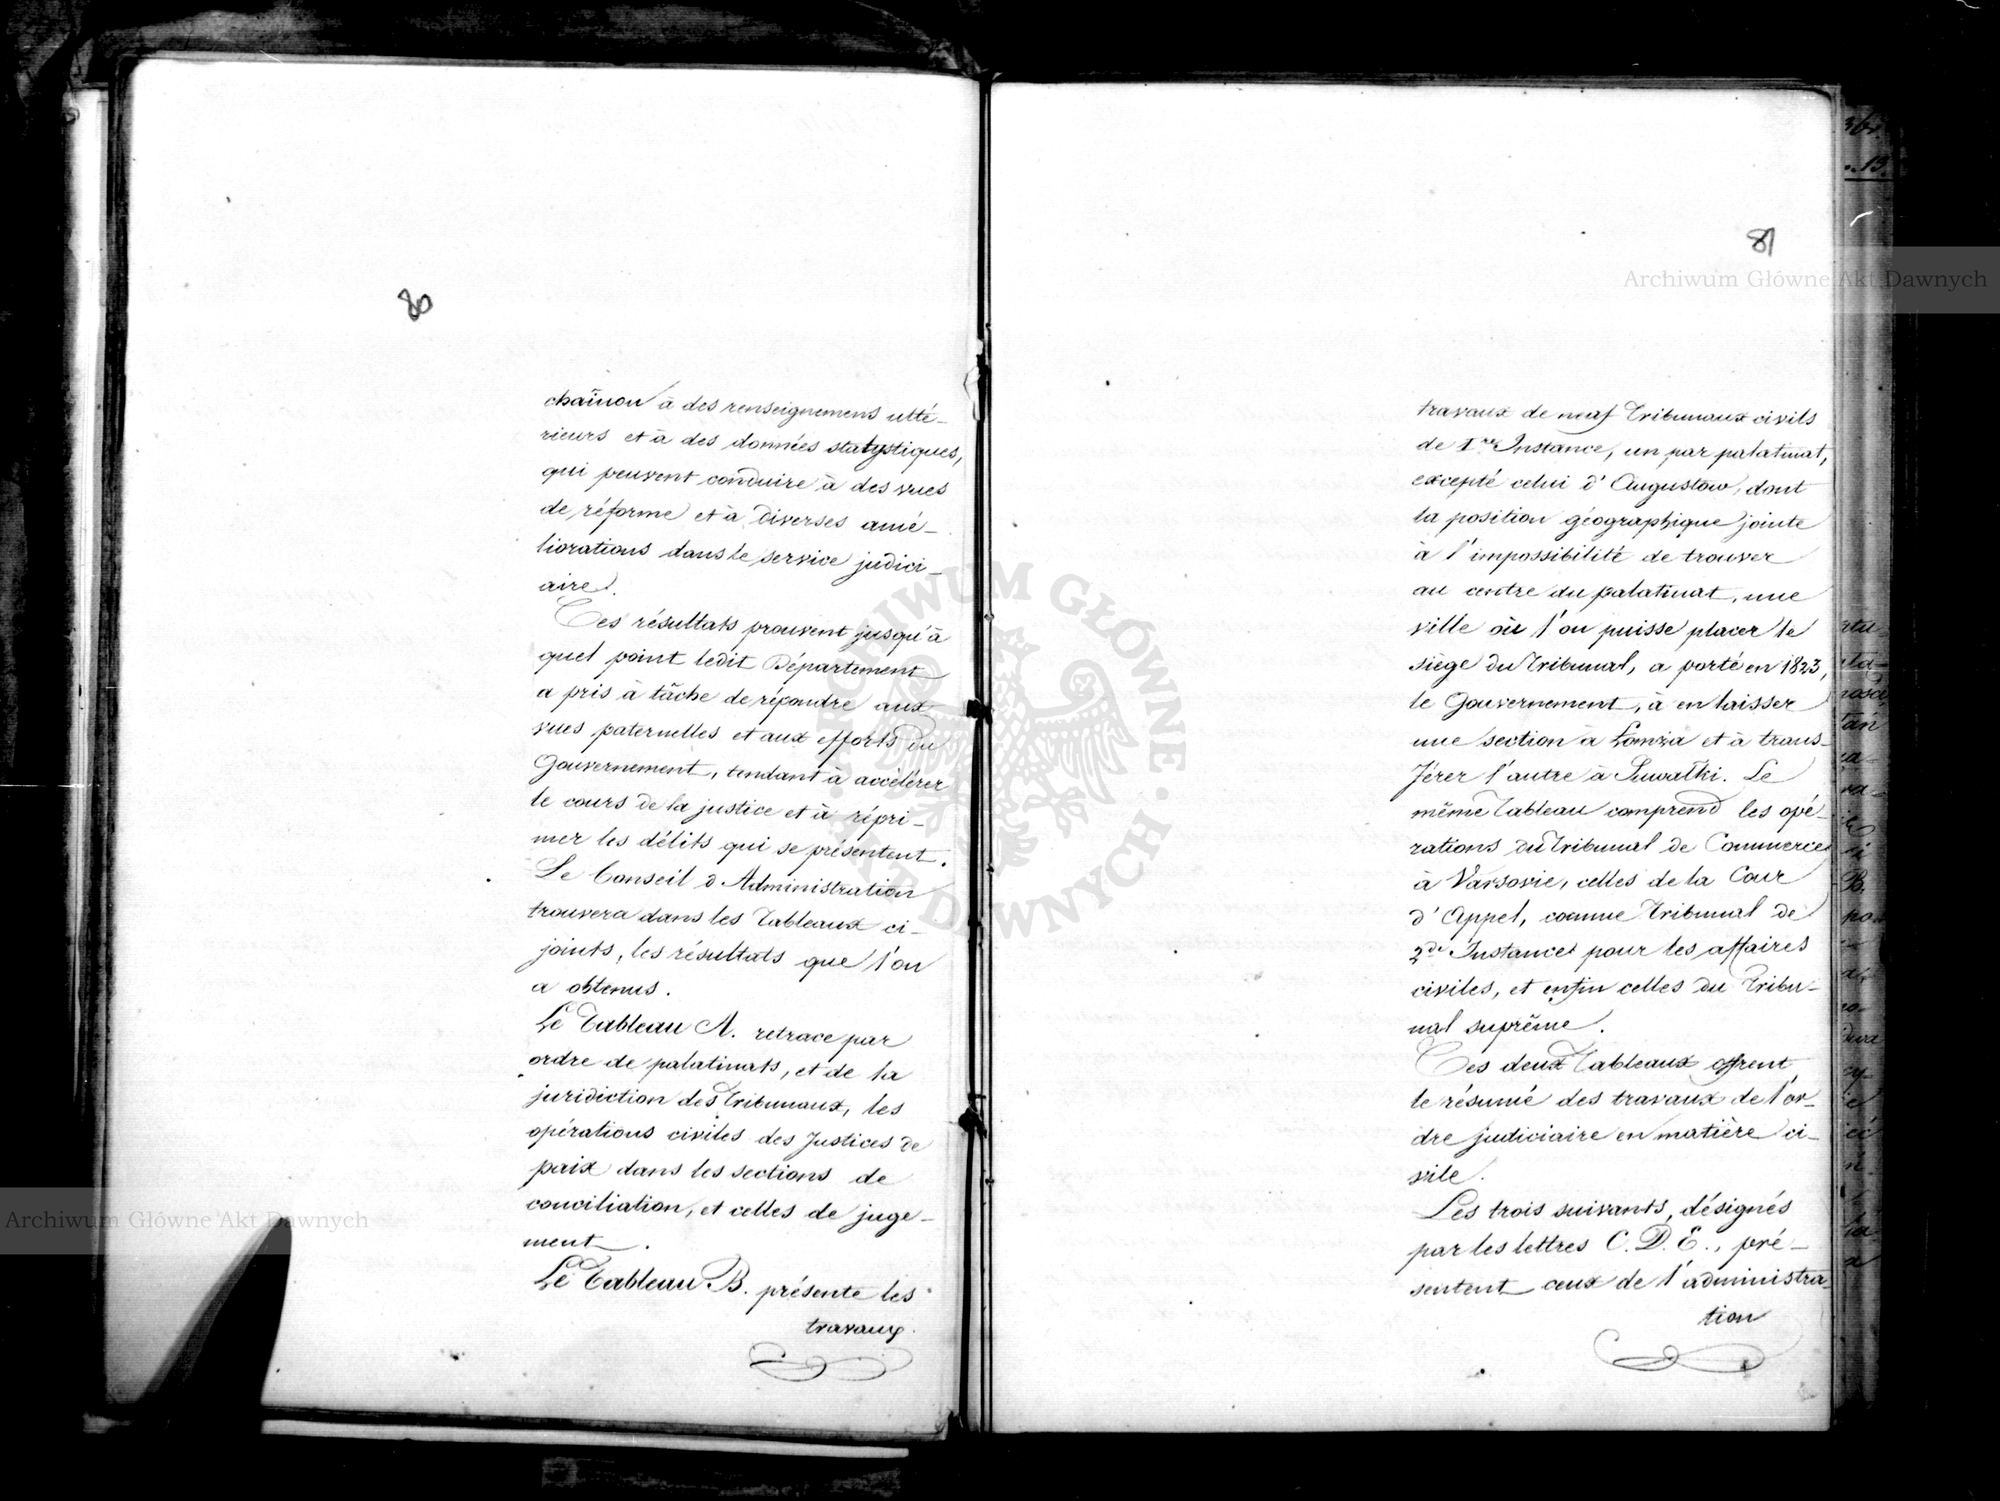 80
chaînon à des renseignemens ulté-
rieurs et à des données statystiques,
qui peuvent conduire à des vues
de réforme et à diverses amé-
liorations dans le service judici-
aire.
Ces résultats prouvent jusqu'à
quel point ledit Département
a pris à tâche de répondre aux
vues paternelles et aux efforts du
Gouvernement, tendant à accélérer
le cours de la justice et à répri-
mer les délits qui se présentent.
Le Conseil d'Administration
trouvera dans les Tableaux ci-
joints, les résultats que l'on
a obtenus.
Le Tableau A. retrace par
ordre de palatinats, et de la
juridiction des Tribunaux, les
opérations civiles des Justices de
paix dans les sections de
conciliation, et celles de juge-
ment.
Le Tableau B. présente les
travaux
81
travaux de neuf Tribunaux civils
de 1re Instance, un par palatinat,
excepté celui d'Augustow, dont
la position géographique jointe
à l'impossibilité de trouver
au centre du palatinat, une
ville où l'on puisse placer le
siège du Tribunal, a porté en 1823,
le Gouvernement, à en laisser
une section à Łomża et à trans-
férer l'autre à Suwałki. Le
même Tableau comprend les opé-
rations du Tribunal de Commerce
à Varsovie, celles de la Cour
d'Appel, comme Tribunal de
2de Instance pour les affaires
civiles, et enfin celles du Tribu-
nal suprême.
Ces deux Tableaux offrent
le résumé des travaux de l'or-
dre judiciaire en matière ci-
vile.
Les trois suivants, désignés
par les lettres C. D. E., pré-
sentent ceux de l'administra-
tion
Archiwum Główne Akt Dawnych
Archiwum Główne Akt Dawnych
ARCHIWUM GŁÓWNE AKT DAWNYCH